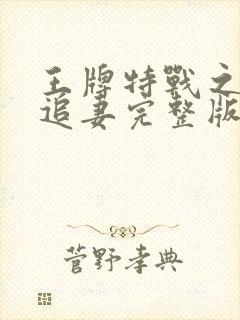 王牌特戰之
追妻完整版
菅野孝典